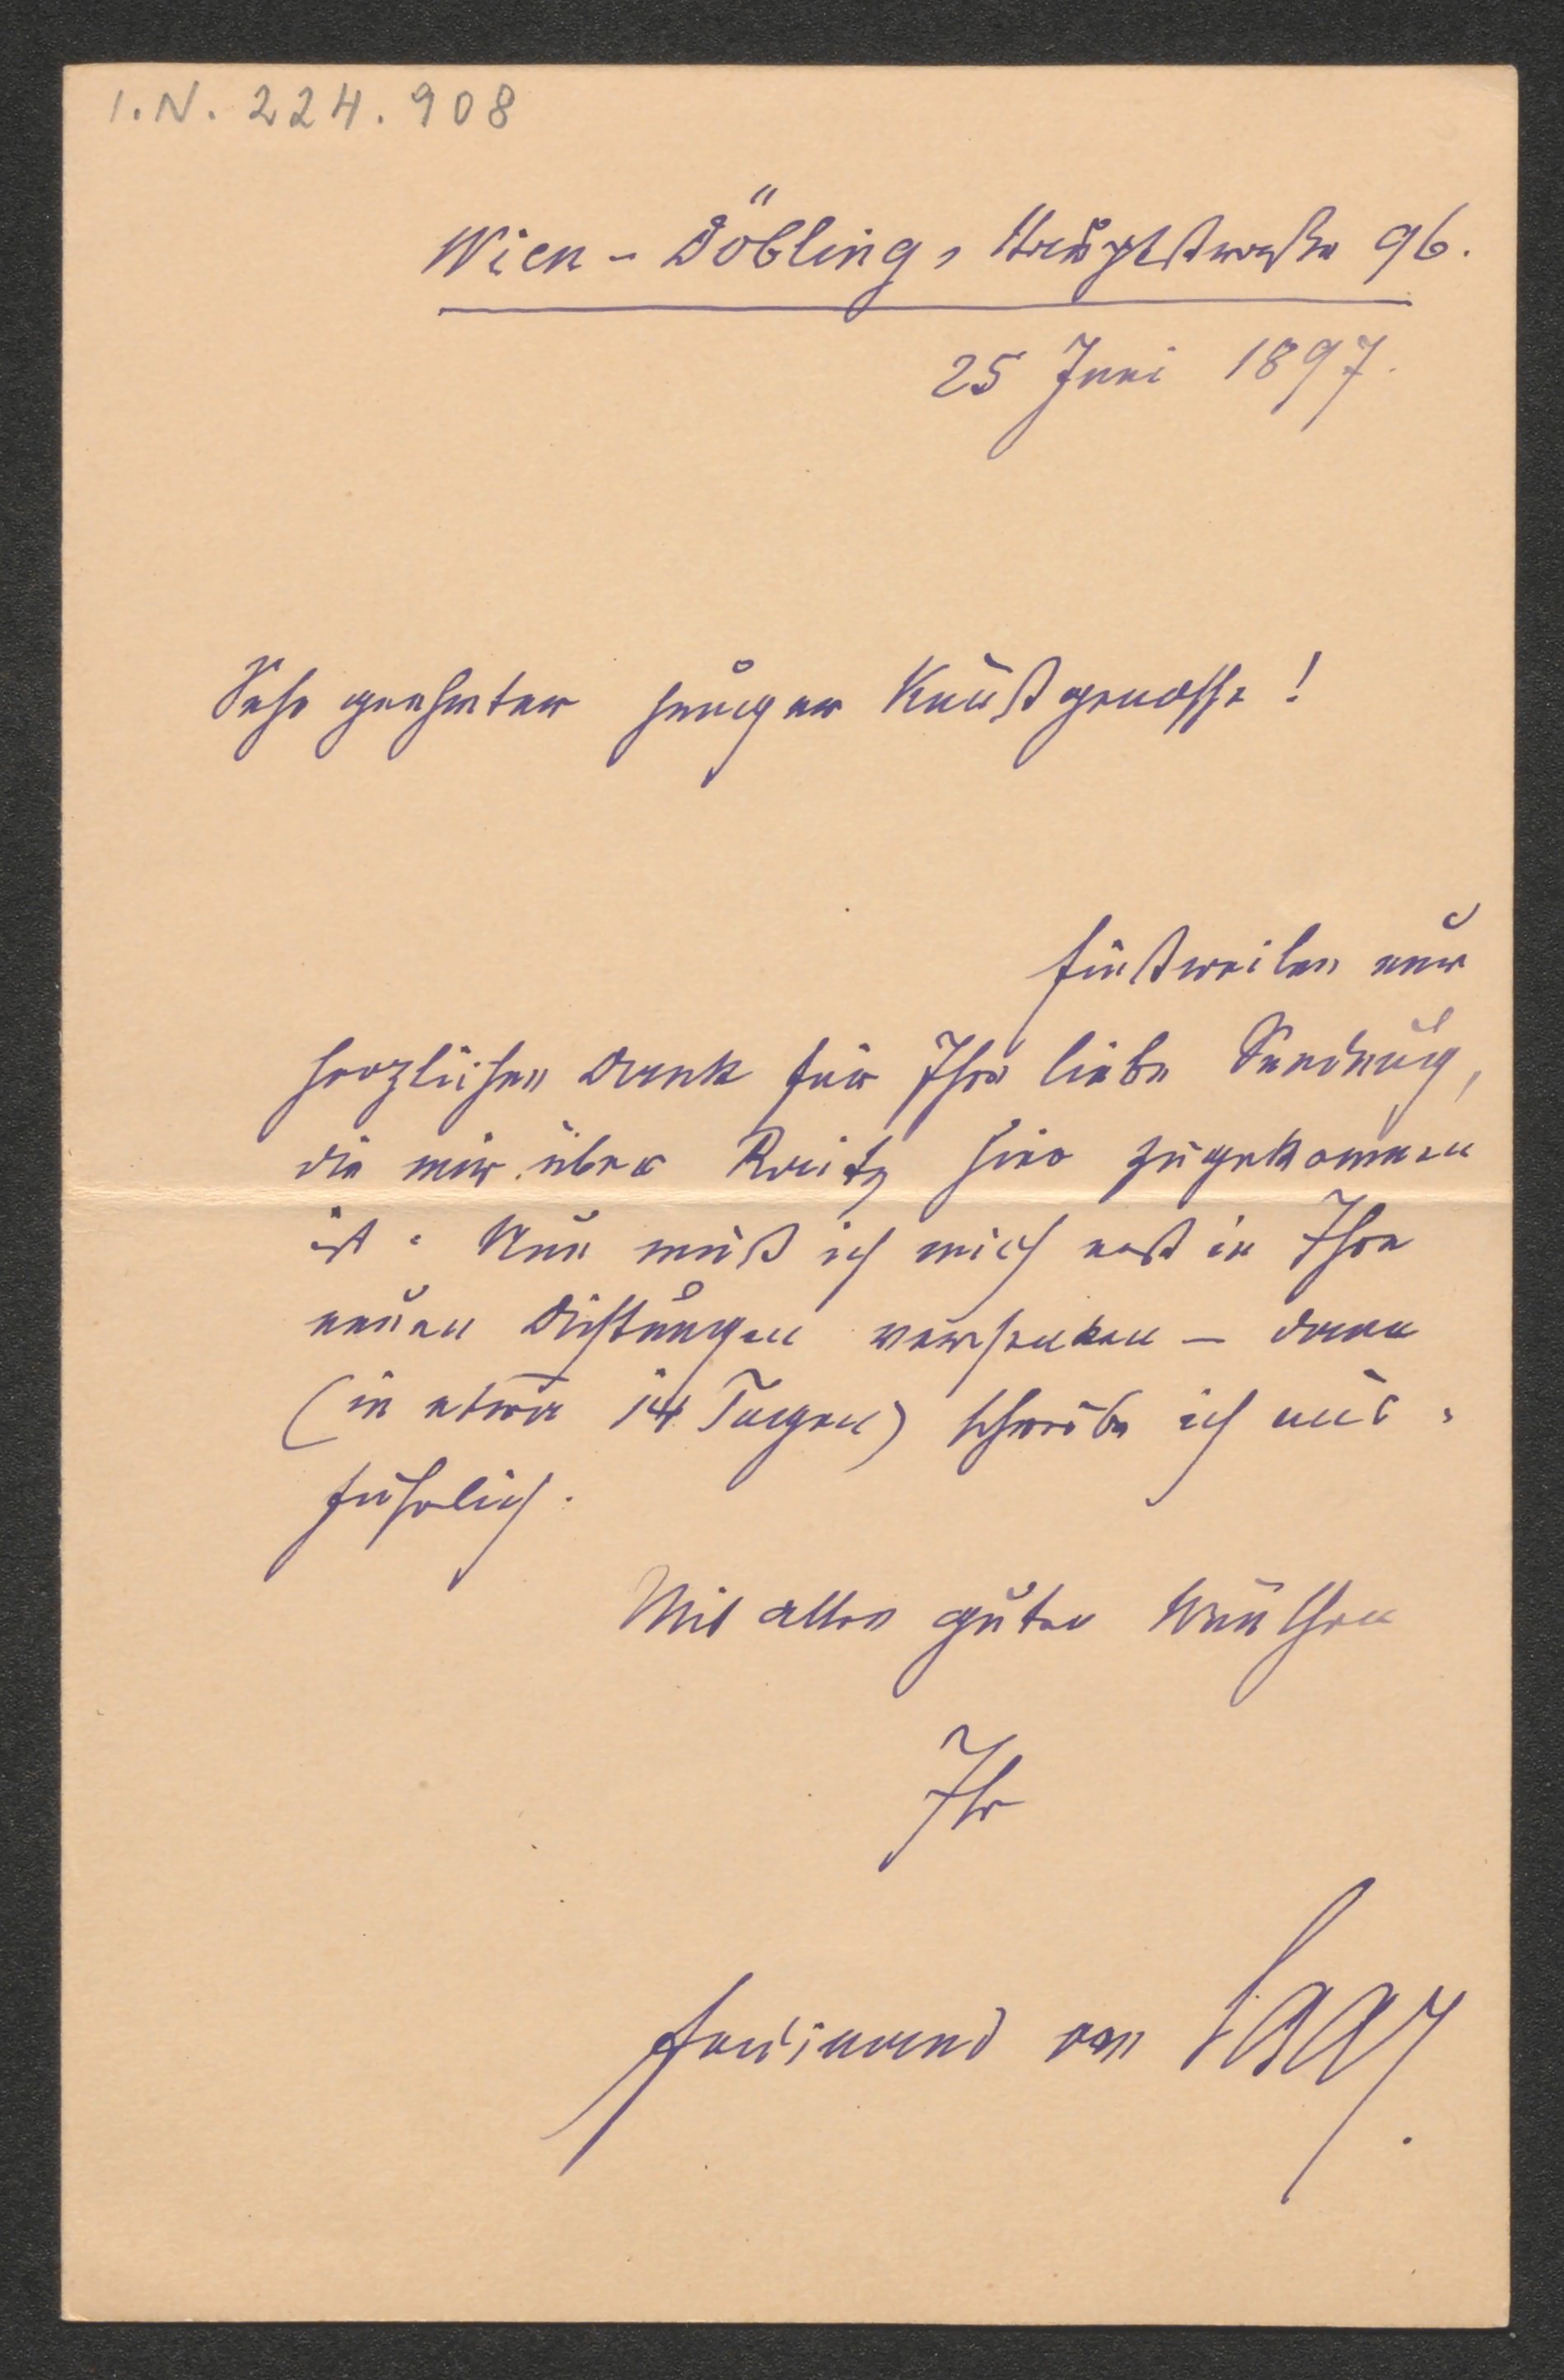 I.N. 224.908
Wien-Döbling, Hauptstraße 96.
25 Juni 1897.
Sehr geehrter junger Kunstgenosse!
Einstweilen nur
herzlichen Dank für Ihre liebe Sendung,
die mir über Raitz hier zugekommen
ist. Nun muß ich mich erst in Ihre
neuen Dichtungen versenken – dann
(in etwa 14 Tagen) schreibe ich aus-
führlich.
Mit allen guten Wünschen
Ihr
Ferdinand von Saar.